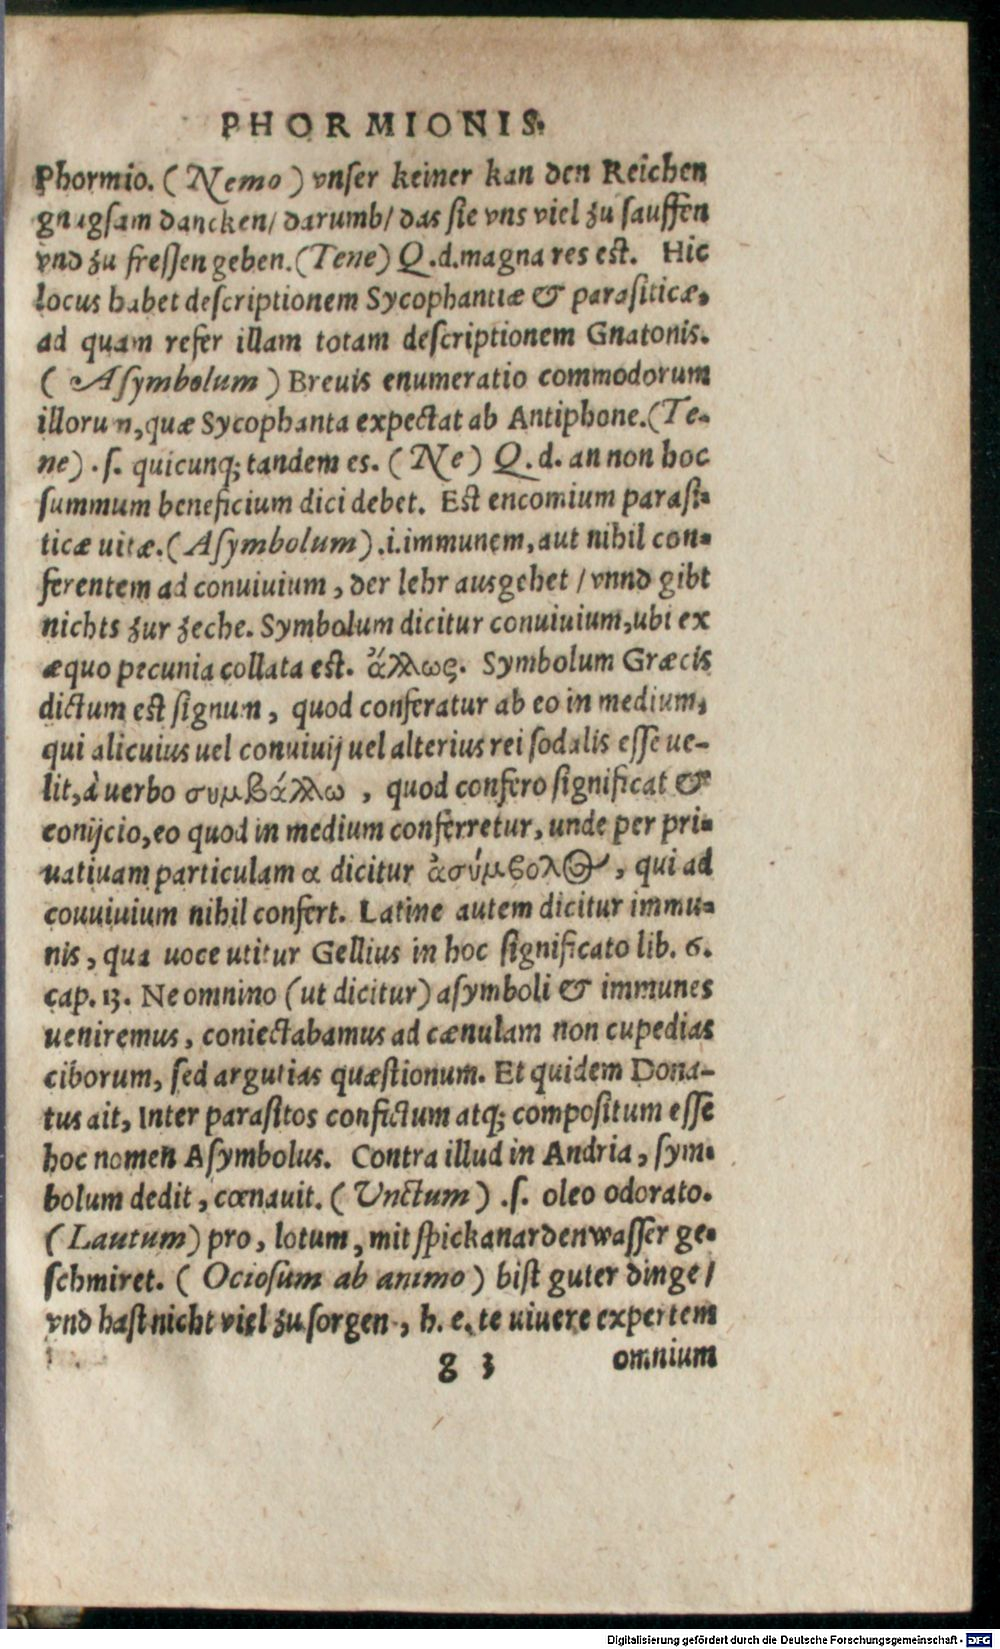 PHORMIONIS.
Phormio. (Nemo) vnser keiner kan den Reichen
gnugsam dancken/ darumb/ das sie vns viel zu sauffen
vnd zu fressen geben. (Tene) Q.d. magna res est. Hic
locus habet descriptionem Sycophantiæ & parasiticæ,
ad quam refer illam totam descriptionem Gnatonis.
(Asymbolum) Breuis enumeratio commodorum
illorum, quæ Sycophanta expectat ab Antiphone. (Te-
ne) .s. quicunq; tandem es. (Ne) Q.d. an non hoc
summum beneficium dici debet. Est encomium parasi-
ticæ uitæ. (Asymbolum) .i. immunem, aut nihil con-
ferentem ad conuiuium, der lehr ausgehet / vnnd gibt
nichts zur zeche. Symbolum dicitur conuiuium, ubi ex
æquo pecunia collata est. ἄλλως. Symbolum Græcis
dictum est signum, quod conferatur ab eo in medium,
qui alicuius uel conuiuij uel alterius rei sodalis esse ue-
lit, à uerbo συμβάλλω, quod confero significat &
conijcio, eo quod in medium conferretur, unde per pri-
uatiuam particulam α dicitur ἀσύμβολος, qui ad
couuiuium nihil confert. Latine autem dicitur immu-
nis, qua uoce utitur Gellius in hoc significato lib. 6.
cap. 13. Ne omnino (ut dicitur) asymboli & immunes
ueniremus, coniectabamus ad cænulam non cupedias
ciborum, sed argutias quæstionum. Et quidem Dona-
tus ait, Inter parasitos confictum atq; compositum esse
hoc nomen Asymbolus. Contra illud in Andria, sym-
bolum dedit, cœnauit. (Unctum) .s. oleo odorato.
(Lautum) pro, lotum, mit spickanardenwasser ge-
schmiret. (Ociosum ab animo) bist guter dinge/
vnd hast nicht viel zu sorgen, h. e. te uiuere expertem
g 3 omnium
Digitalisierung gefördert durch die Deutsche Forschungsgemeinschaft - DFG